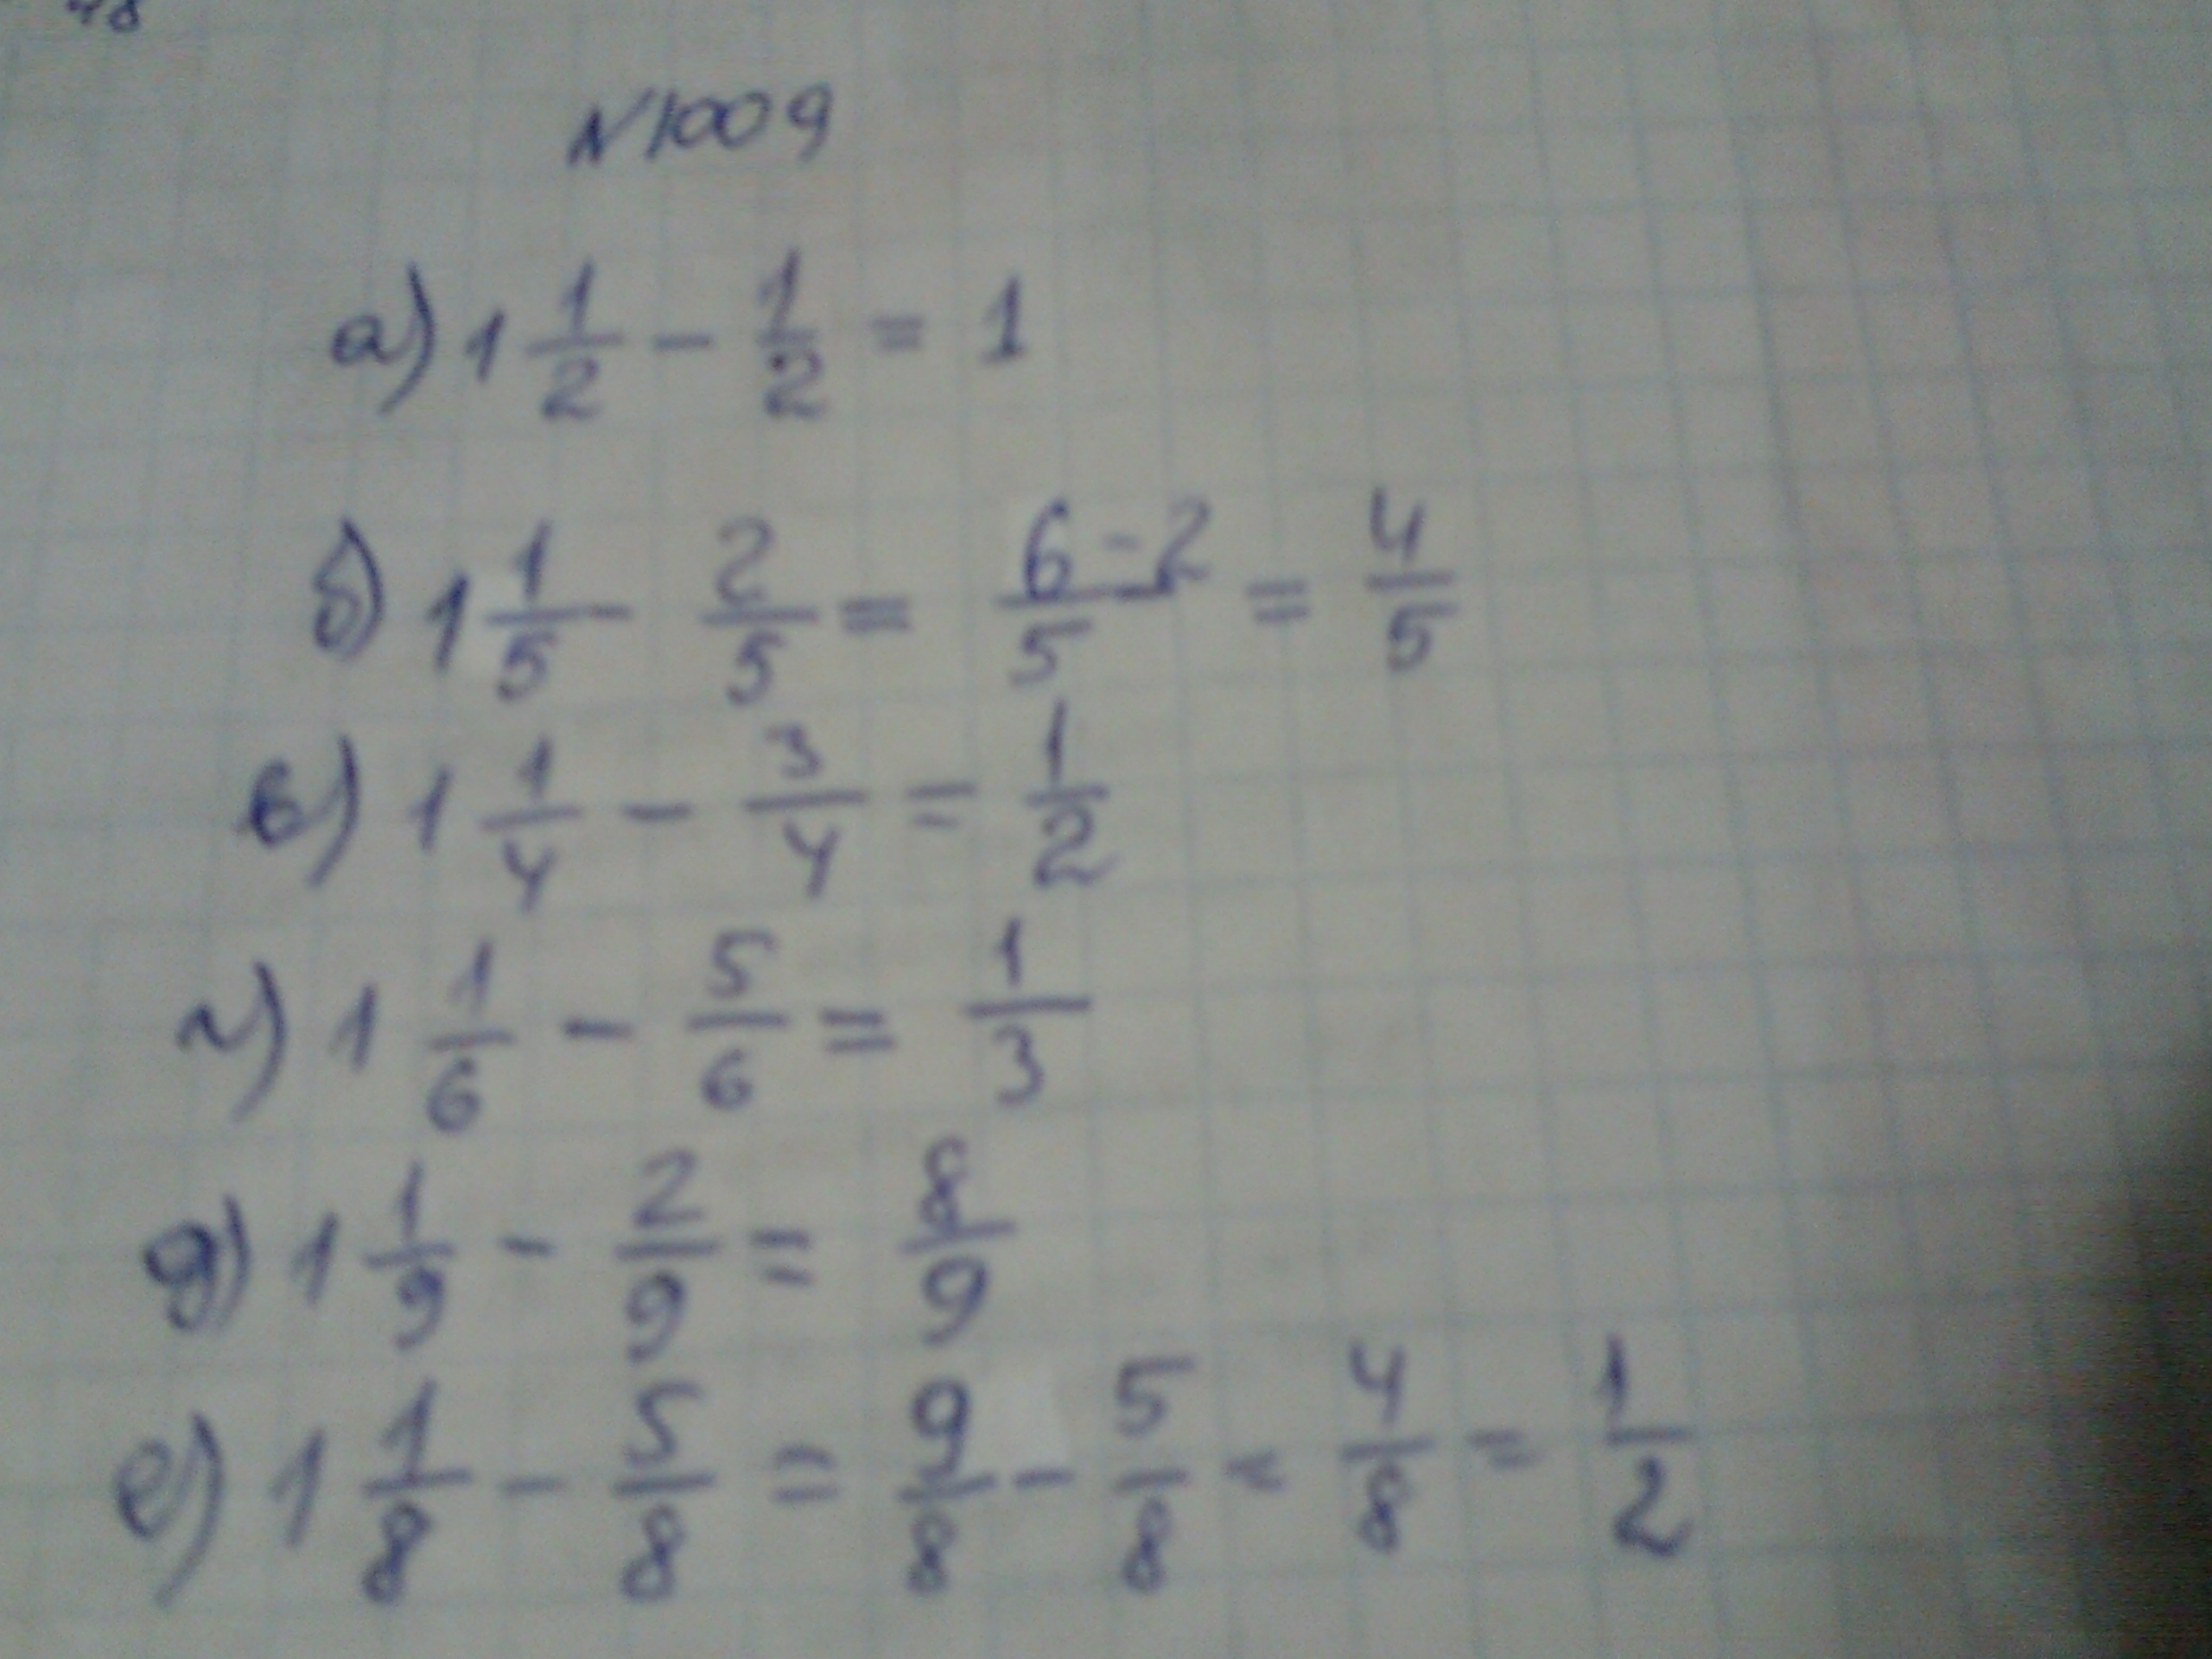 N1009
а) 1 1/2 - 1/2 = 1
б) 1 1/5 - 2/5 = 6-2/5 = 4/5
в) 1 1/4 - 3/4 = 1/2
г) 1 1/6 - 5/6 = 1/3
д) 1 1/9 - 2/9 = 8/9
е) 1 1/8 - 5/8 = 9/8 - 5/8 = 4/8 = 1/2